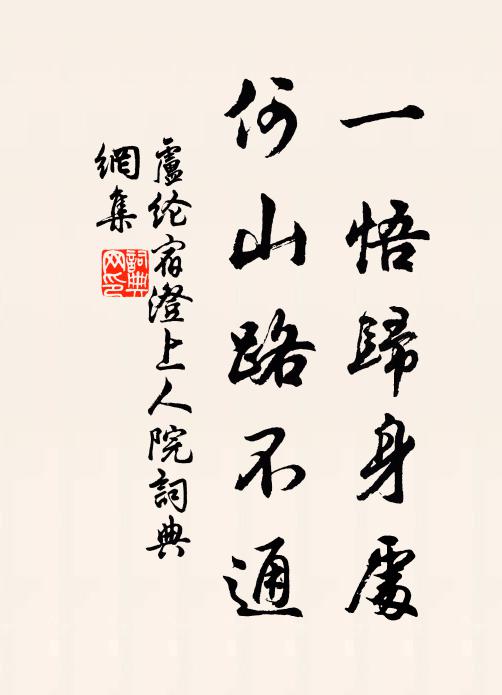 一悟歸身處
何山路不通
盧纶宿澄上人院詞典
網集
詞典
网印